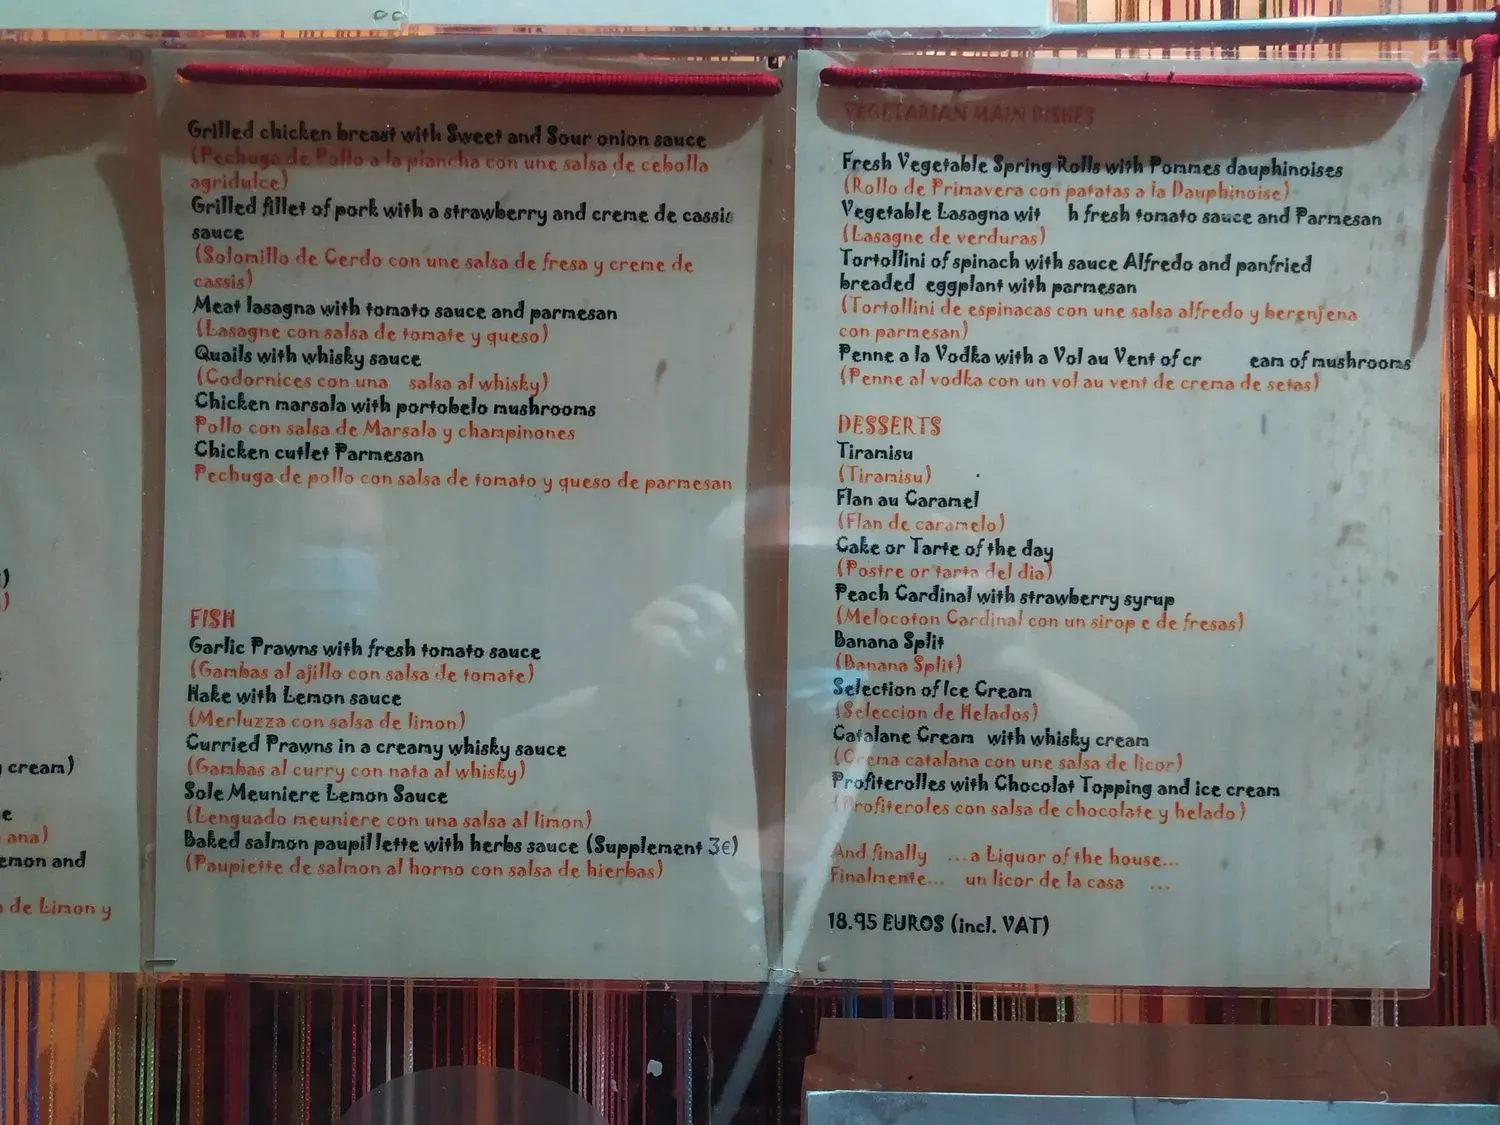 )
)
cream)
e
ana)
emon and
de Limon y
Grilled chicken breast with Sweet and Sour onion sauce
(Pechuga de Pollo a la plancha con une salsa de cebolla
agridulce)
Grilled fillet of pork with a strawberry and creme de cassis
sauce
(Solomillo de Cerdo con une salsa de fresa y creme de
cassis)
Meat lasagna with tomato sauce and parmesan
(Lasagne con salsa de tomate y queso)
Quails with whisky sauce
(Codornices con una salsa al whisky)
Chicken marsala with portobelo mushrooms
Pollo con salsa de Marsala y champinones
Chicken cutlet Parmesan
Pechuga de pollo con salsa de tomato y queso de parmesan
FISH
Garlic Prawns with fresh tomato sauce
(Gambas al ajillo con salsa de tomate)
Hake with Lemon sauce
(Merluzza con salsa de limon)
Curried Prawns in a creamy whisky sauce
(Gambas al curry con nata al whisky)
Sole Meuniere Lemon Sauce
(Lenguado meuniere con una salsa al limon)
Baked salmon paupillette with herbs sauce (Supplement 3€)
(Paupiette de salmon al horno con salsa de hierbas)
VEGETARIAN MAIN DISHES
Fresh Vegetable Spring Rolls with Pommes dauphinoises
(Rollo de Primavera con patatas a la Dauphinoise)
Vegetable Lasagna wit h fresh tomato sauce and Parmesan
(Lasagne de verduras)
Tortollini of spinach with sauce Alfredo and panfried
breaded eggplant with parmesan
(Tortollini de espinacas con une salsa alfredo y berenjena
con parmesan)
Penne a la Vodka with a Vol au Vent of cr eam of mushrooms
(Penne al vodka con un vol au vent de crema de setas)
DESSERTS
Tiramisu
(Tiramisu)
Flan au Caramel
(Flan de caramelo)
Cake or Tarte of the day
(Postre or tarta del dia)
Peach Cardinal with strawberry syrup
(Melocoton Cardinal con un sirop e de fresas)
Banana Split
(Banana Split)
Selection of Ice Cream
(Seleccion de Helados)
Catalane Cream with whisky cream
(Crema catalana con une salsa de licor)
Profiterolles with Chocolat Topping and ice cream
(Profiteroles con salsa de chocolate y helado)
And finally ...a Liquor of the house...
Finalmente... un licor de la casa ...
18.95 EUROS (incl. VAT)